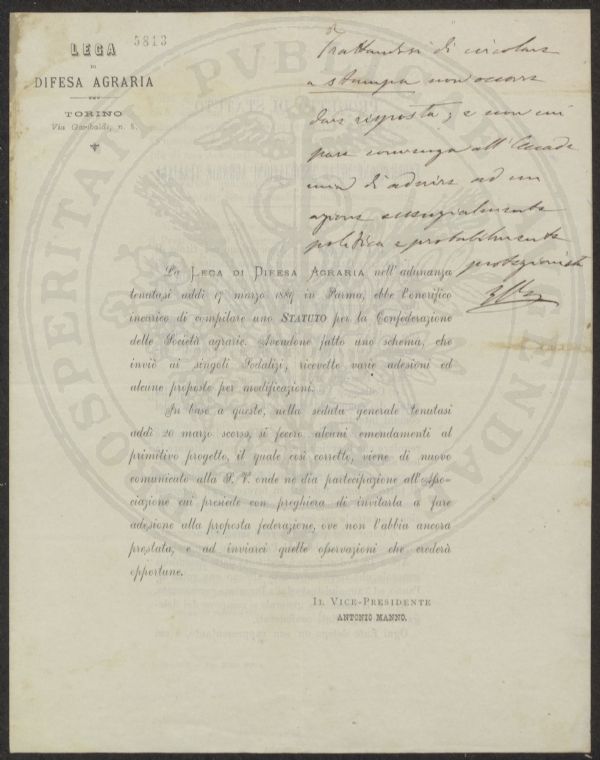 LEGA
DI
DIFESA AGRARIA
TORINO
Via Garibaldi, n. 5.
5813
Trattandosi di circolare
a stampa non occorre
dare risposta; e non mi
pare convenga all'Accade
mia di aderire ad un
azione essenzialmente
politica e probabilmente
protezionista
La LEGA DI DIFESA AGRARIA nell'adunanza
tenutasi addì 17 marzo 1889 in Parma, ebbe l'onorifico
incarico di compilare uno STATUTO per la Confederazione
delle Società agrarie. Avendone fatto uno schema, che
inviò ai singoli Sodalizi, ricevette varie adesioni ed
alcune proposte per modificazioni.
In base a queste, nella seduta generale tenutasi
addì 20 marzo scorso, si fecero alcuni emendamenti al
primitivo progetto, il quale così corretto, viene di nuovo
comunicato alla S. V. onde ne dia partecipazione all'Asso-
ciazione cui presiede con preghiera di invitarla a fare
adesione alla proposta federazione, ove non l'abbia ancora
prestata, e ad inviarci quelle osservazioni che crederà
opportune.
IL VICE-PRESIDENTE
ANTONIO MANNO.
PROSPERITATI PVBLICAE AVGENDAE